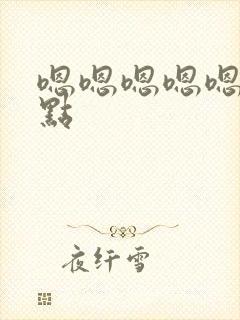 嗯嗯嗯嗯嗯
點
夜纤雪